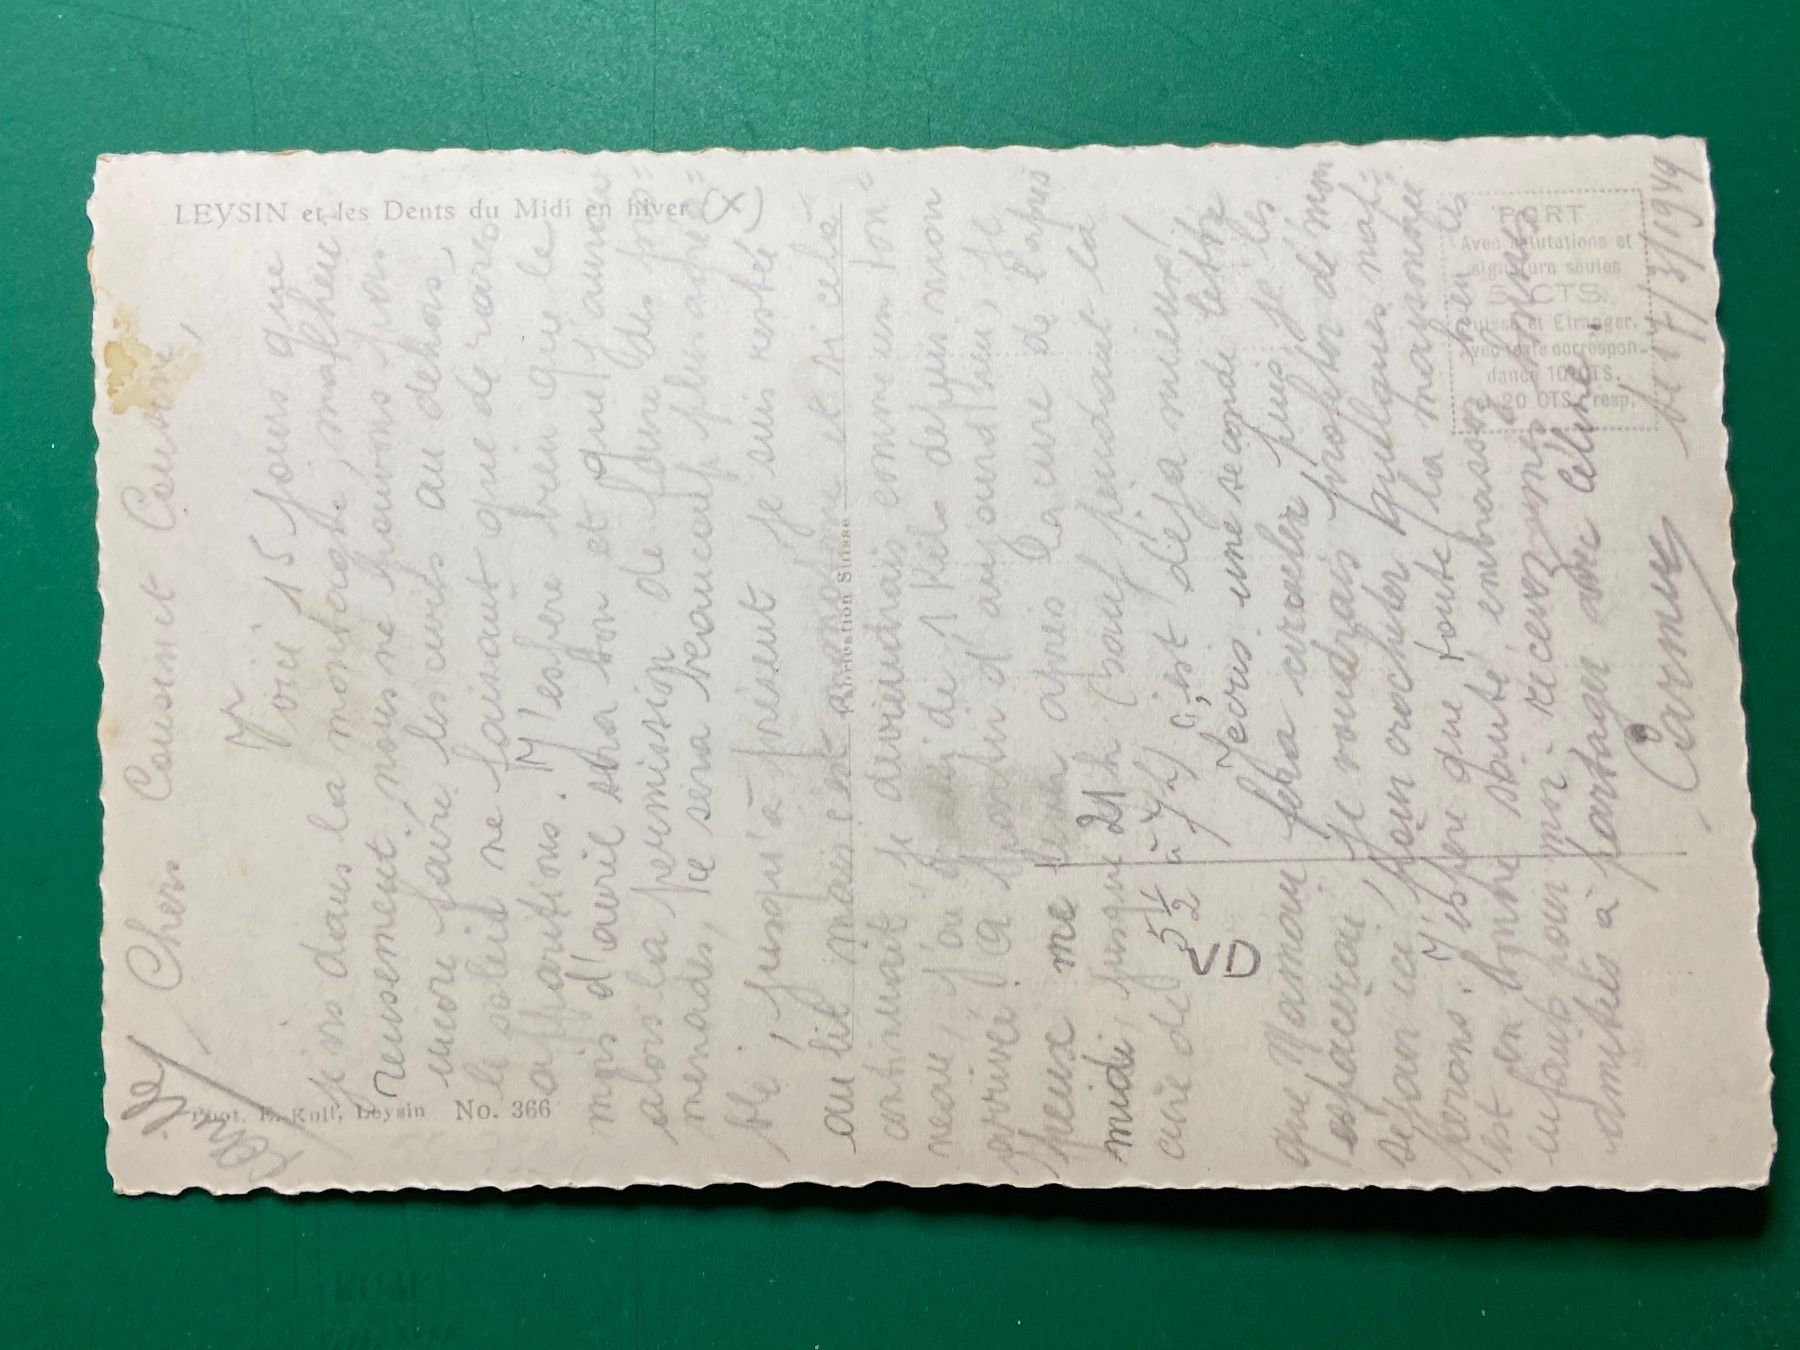 LEYSIN et les Dents du Midi en hiver (X)
Phot. E. Kull, Leysin No. 366
PORT
Avec salutations et
signature seules
5 CTS.
Suisse et Etranger.
Avec texte correspon-
dance 10 CTS.
et 20 CTS. resp.
le 17/3/1949
Chers Cousin et Cousine,
Voici 15 jours que
je suis dans la montagne, malheu
reusement, nous ne pouvons pas
encore faire les cures au dehors,
le soleil ne faisant que de rares
apparitions. J'espère bien que le
mois d'avril sera bon et que j'aurai
alors la permission de faire des pro=
menades, ce sera beaucoup plus agréa=
ble, jusqu'à présent je suis restée
au lit mais c'est et si cela
continuait je deviendrais comme un ton=
neau, j'ai de 1 Kilo depuis mon
arrivée. A partir d'aujourd'hui, je
peux me lever après la cure de l'après
midi, jusque 21 h (sauf pendant la
cure de 5 1/2 à 7 h) c'est déjà mieux!
J'écris une seconde lettre
que Maman fera circuler puis je les
espacerai, je voudrais profiter de mon
séjour ici, pour crocheter quelques nap=
perons. J'espère que toute la maisonnée
est en bonne santé, embrassez bien les
enfants pour moi. recevez mes
amitiés à partager avec Céline
Carmen
VD